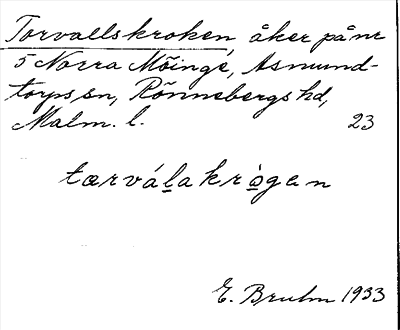 Torvallskroken åker på nr
5 Norra Möinge, Asmund-
torps sn, Rönnebergs hd,
Malm. l. 23
tœrváḻakrò̱gen
E. Bruhn 1933